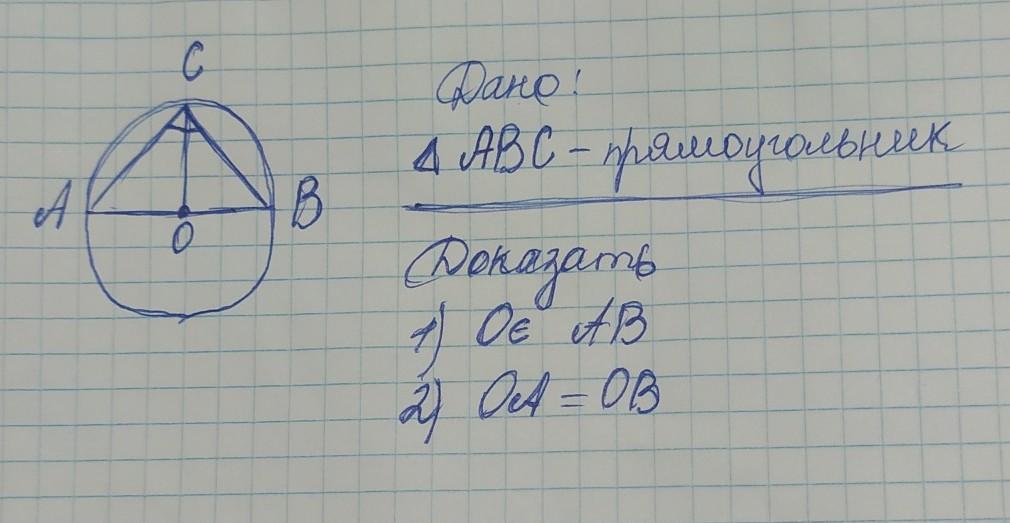 C
Дано:
Δ ABC - прямоугольник
A
B
O
Доказать
1) O∈ AB
2) OA = OB